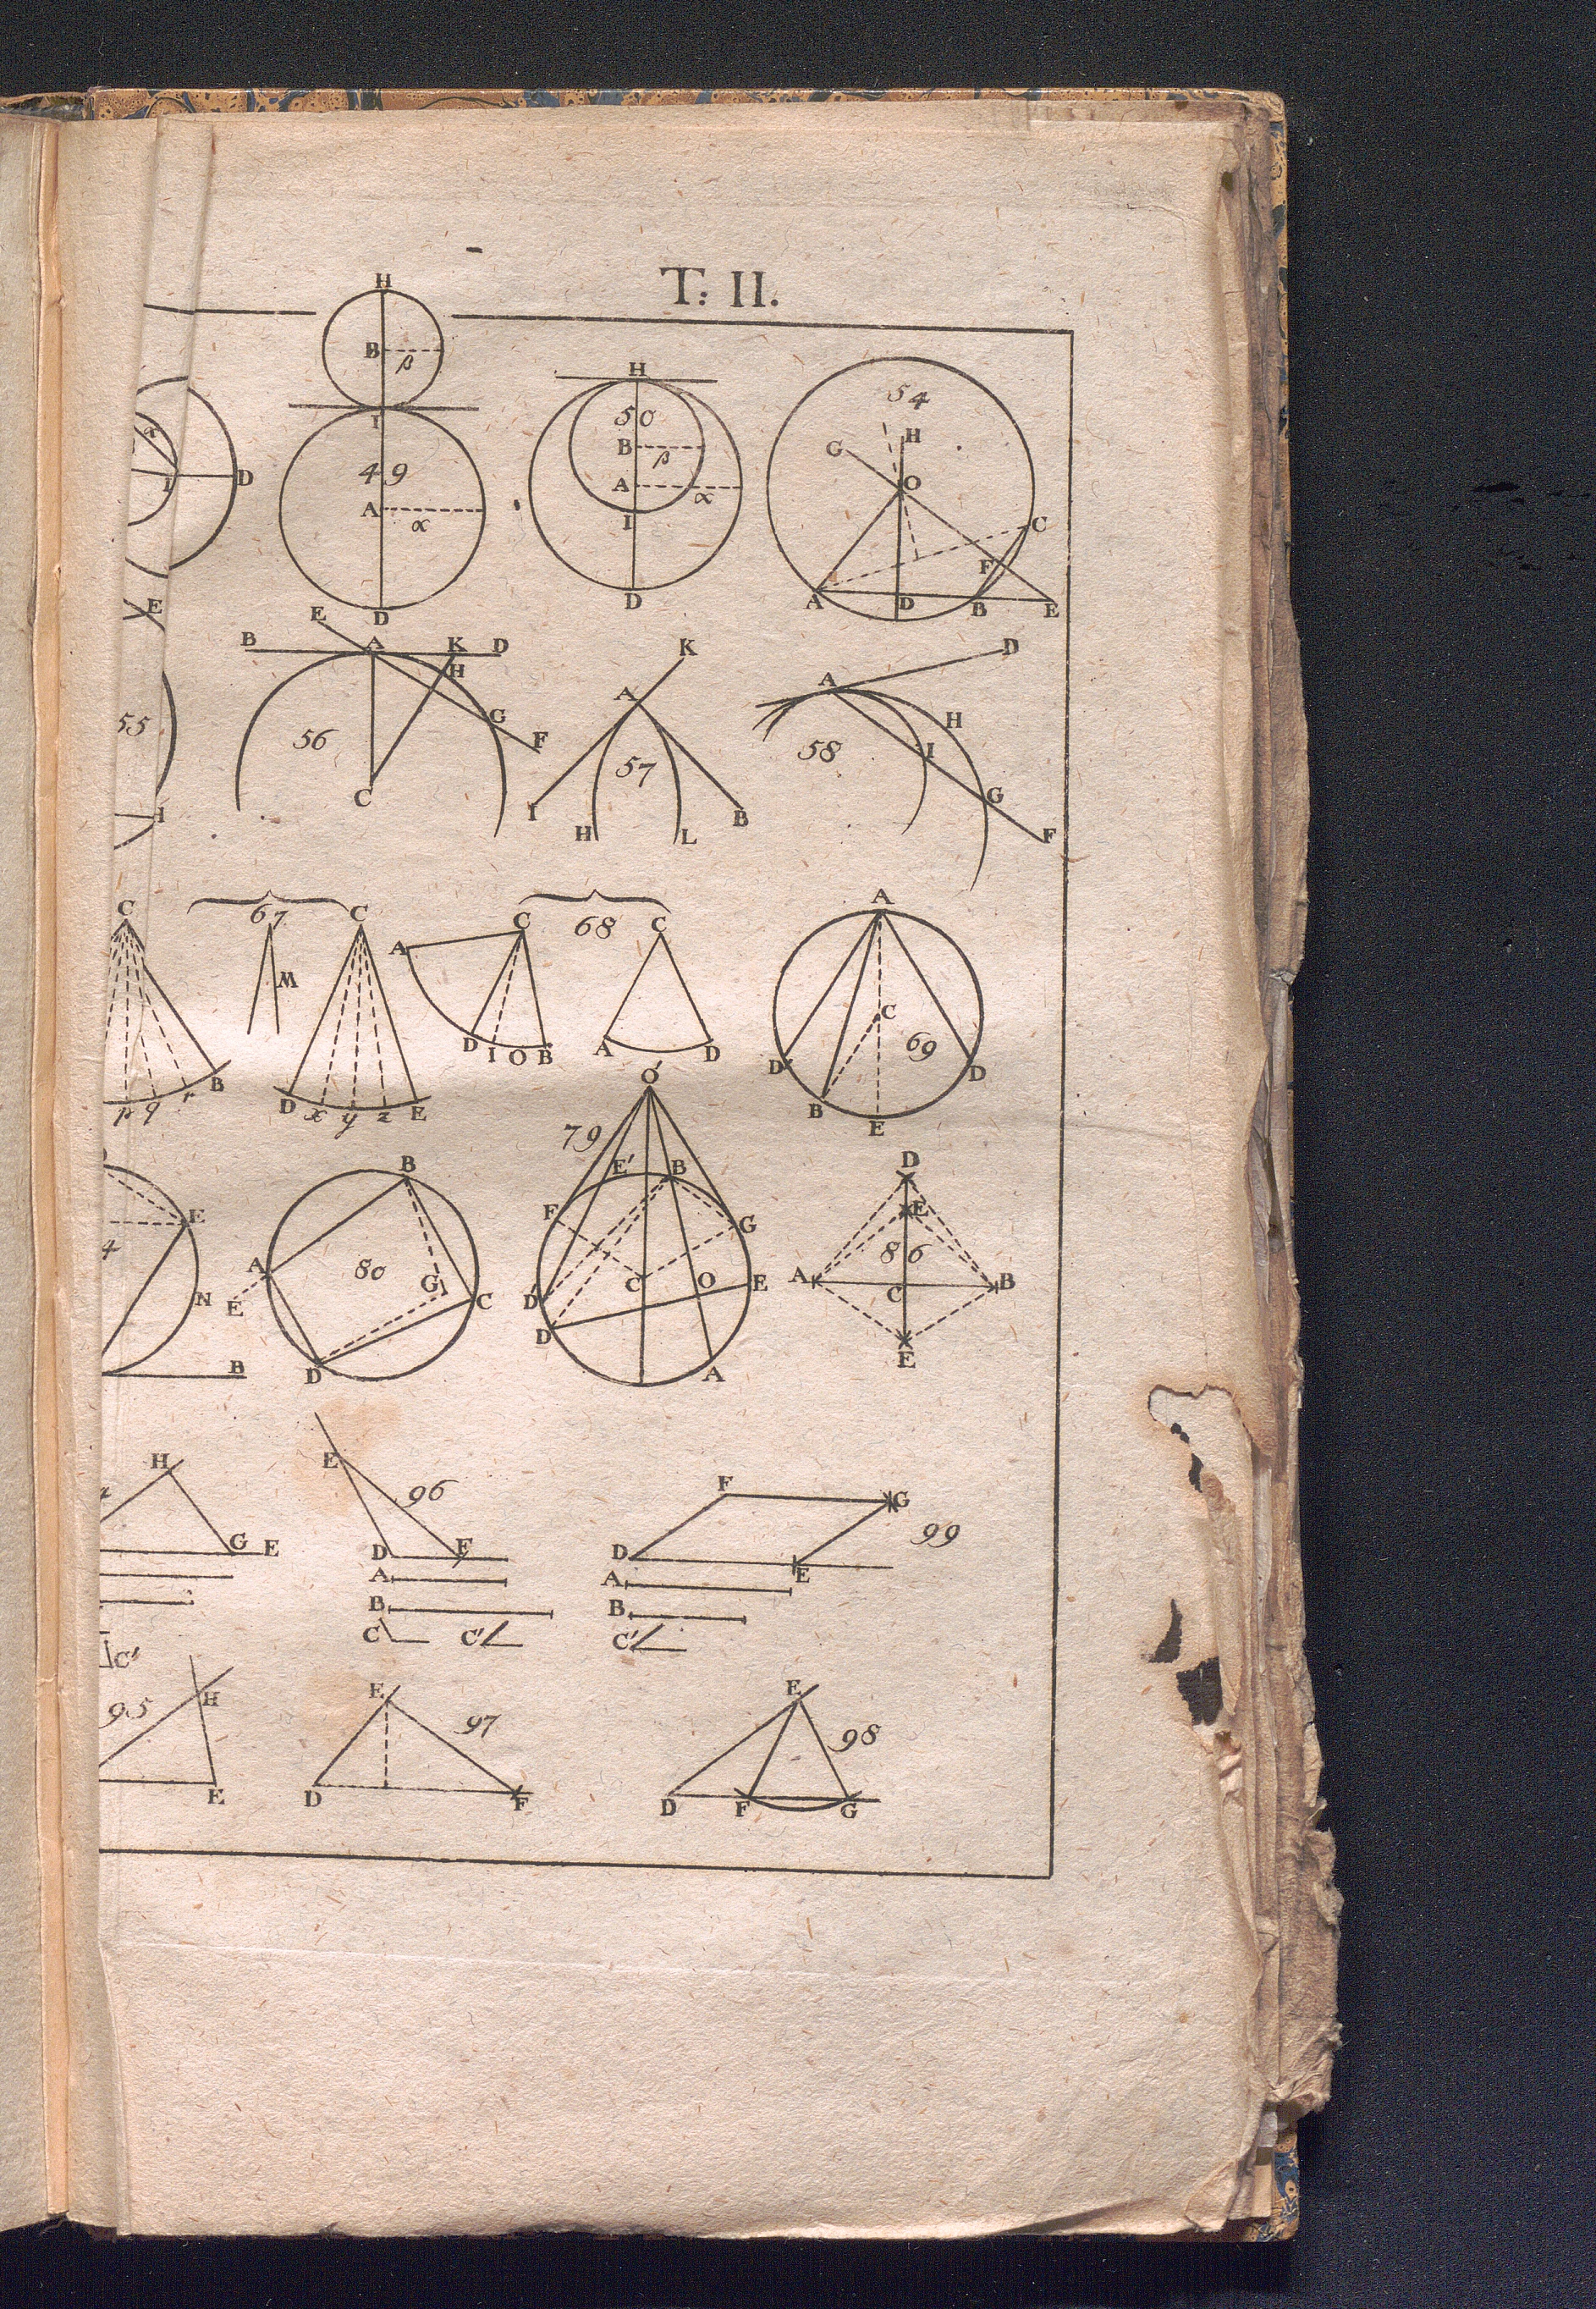 T: II.
H
B β
I
49
A α
D
H
50
B β
A α
I
D
54
G H
O
C
F
A D B E
D
E
E
B A K D
H
G
F
56
C
K
A
57
I H L B
D
A
H
58
I
G
F
55
I
C
B
p q r
67
M
C
D x y z E
68
C C
A
D I O B
A D
A
C
69
D' D
B
E
E
4
N
B
B
A
80
G
C
E
D
O'
79
E' B
F G
C O E
D'
D
A
D
E
86
A B
C
E
H
G E
E
96
D F
A
B
C C'
F G
99
D E
A
B
C'
C'
95
H
E
E
97
D F
E
98
D F G